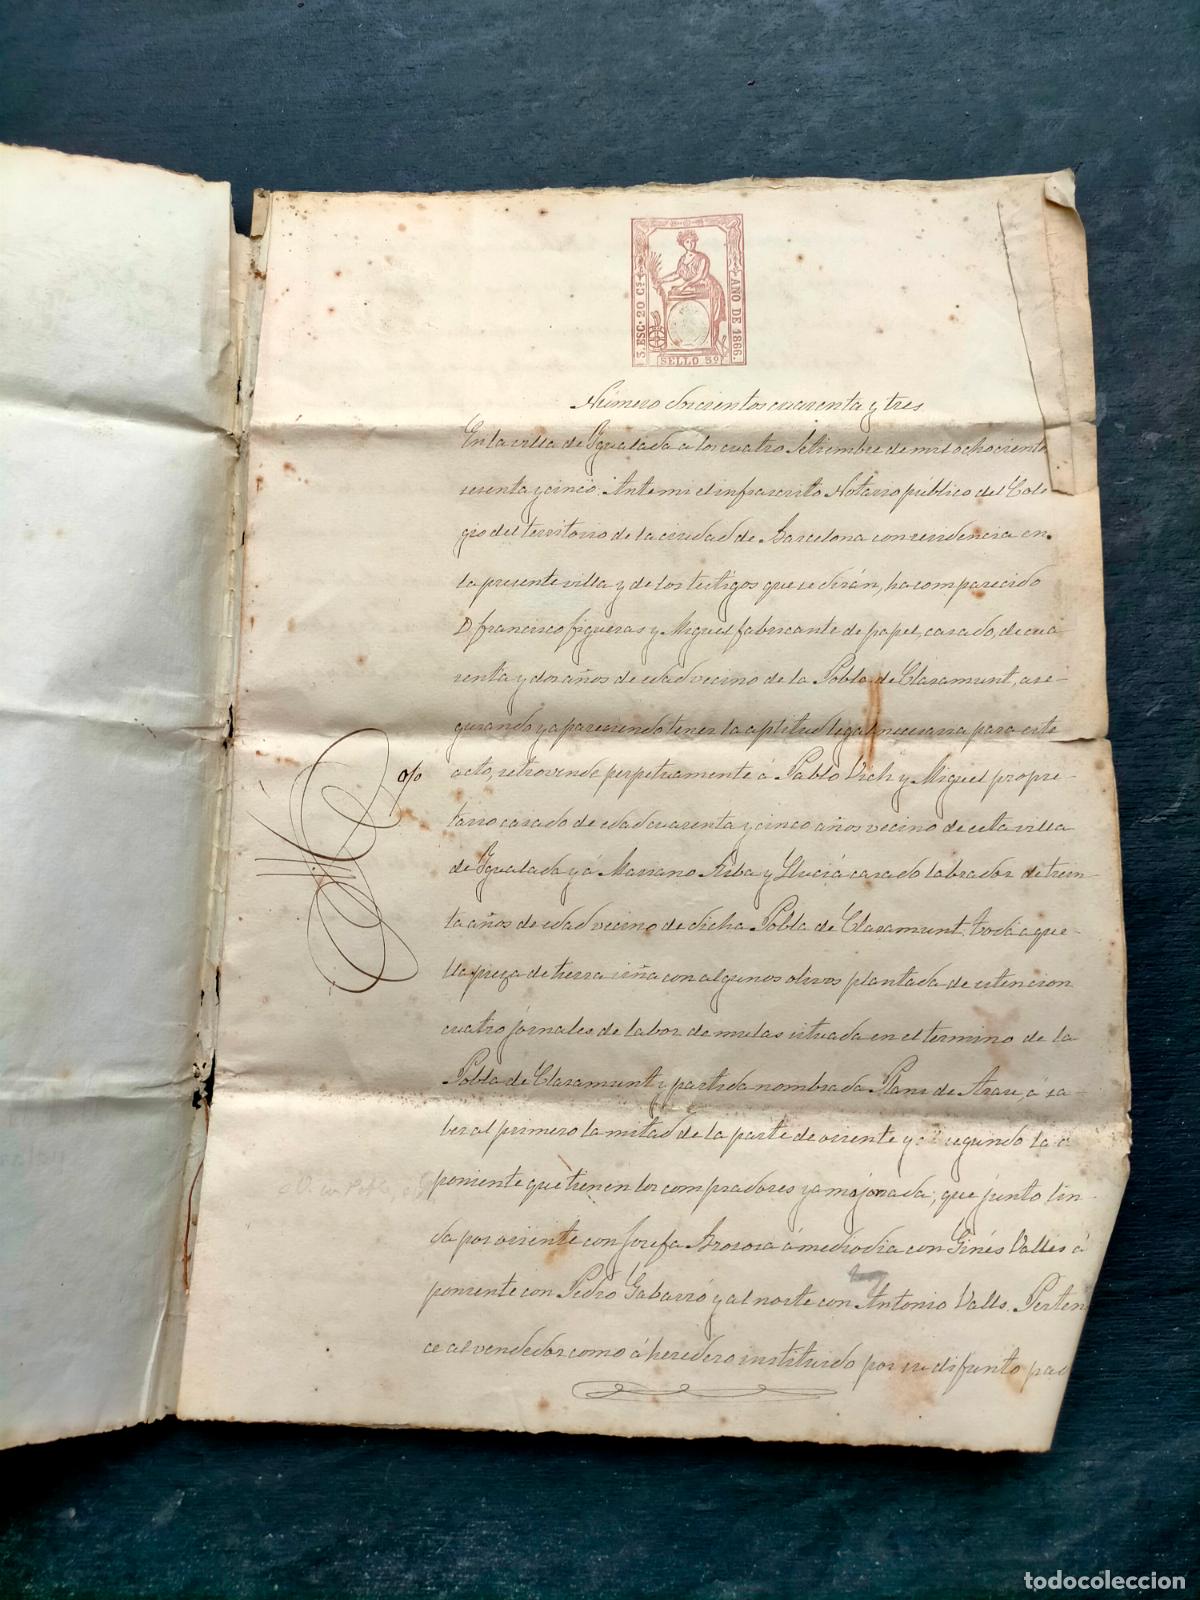 3. ESC. 20 Cs.
AÑO DE 1866.
SELLO 5º
Número doscientos cuarenta y tres
En la villa de Ygualada a los cuatro Setiembre de mil ochocient
sesenta y cinco. Ante mi el infrascrito Notario público del Cole
gio del territorio de la ciudad de Barcelona con residencia en
la presente villa y de los testigos que se dirán, ha comparecido
D. francisco figueras y Miguel fabricante de papel, casado, de cua
renta y dos años de edad vecino de la Pobla de Claramunt, ase-
gurando y apareciendo tener la aptitud legal necesaria para este
acto, retrovende perpetuamente á Pablo Vich y Miquel propie-
tario casado de edad cuarenta y cinco años vecino de esta villa
de Ygualada y á Mariano Riba y Lluciá casado labrador de trein-
ta años de edad vecino de dicha Pobla de Claramunt. toda aque-
lla pieza de tierra viña con algunos olivos plantada de estencion
cuatro jornales de labor de mulas situada en el termino de la
Pobla de Claramunt y partida nombrada Plans de Arau, á sa-
ber al primero la mitad de la parte de oriente y segundo la
poniente que tienen los compradores ya mojonada; que junto lin-
da por oriente con Josefa á mediodia con Ginés Valles á
poniente con Pedro Gabarró y al norte con Antonio Valls. Perten
ce al vendedor como á heredero instituido por su difunto pad
todocoleccion